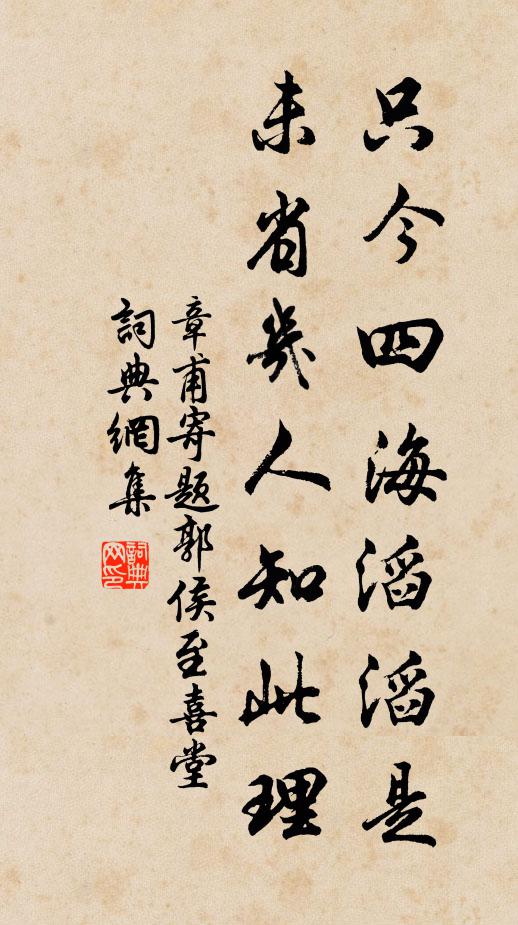 只今四海滔滔是
未省幾人知此理
章甫寄題郭侯至喜堂
詞典網集
詞典网印